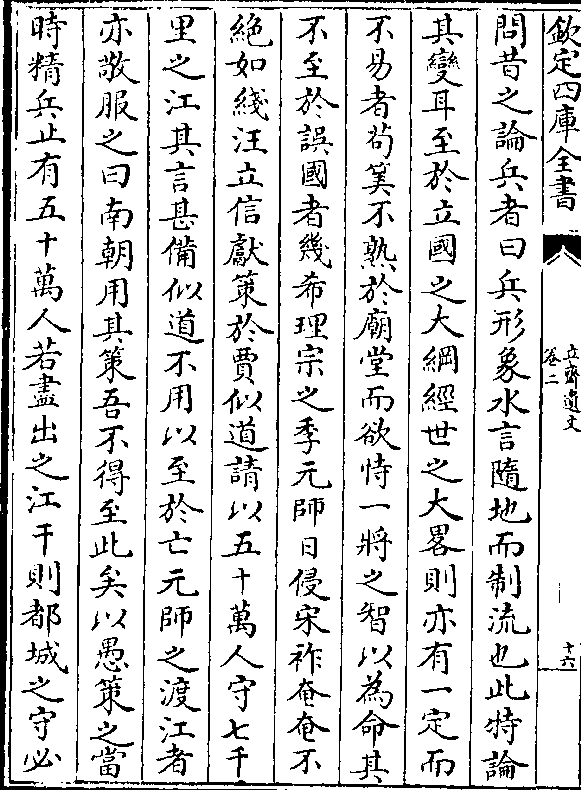 欽定四庫全書
立齋遺文
卷二
十六
問昔之論兵者曰兵形象水言隨地而制流也此特論
其變耳至於立國之大綱經世之大畧則亦有一定而
不易者茍筭不熟於廟堂而欲恃一將之智以為命其
不至於誤國者幾希理宗之季元師日侵宋祚奄奄不
絶如綫汪立信獻策於賈似道請以五十萬人守七千
里之江其言甚備似道不用以至於亡元師之渡江者
亦敬服之曰南朝用其策吾不得至此矣以愚策之當
時精兵止有五十萬人若盡出之江干則都城之守必